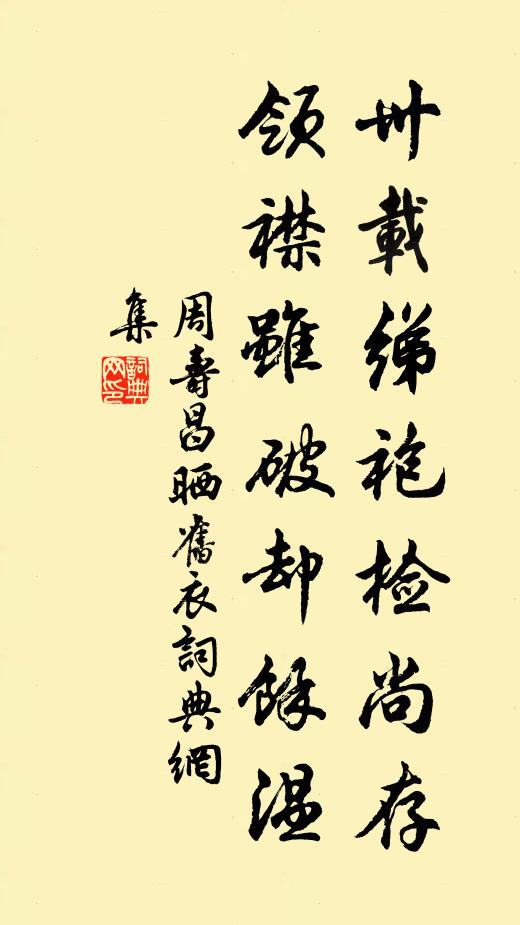 卅載綈袍检尚存
領襟雖破却餘温
周壽昌晒舊衣詞典網
集
詞典
网印